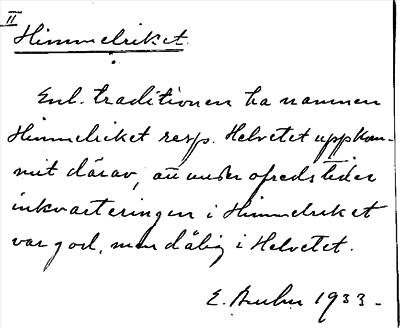 II
Himmelriket.
Enl. traditionen ha namnen
Himmelriket resp. Helvetet uppkom-
mit därav, att under ofredstider
inkvarteringen i Himmelriket
var god, men dålig i Helvetet.
E. 1933 -